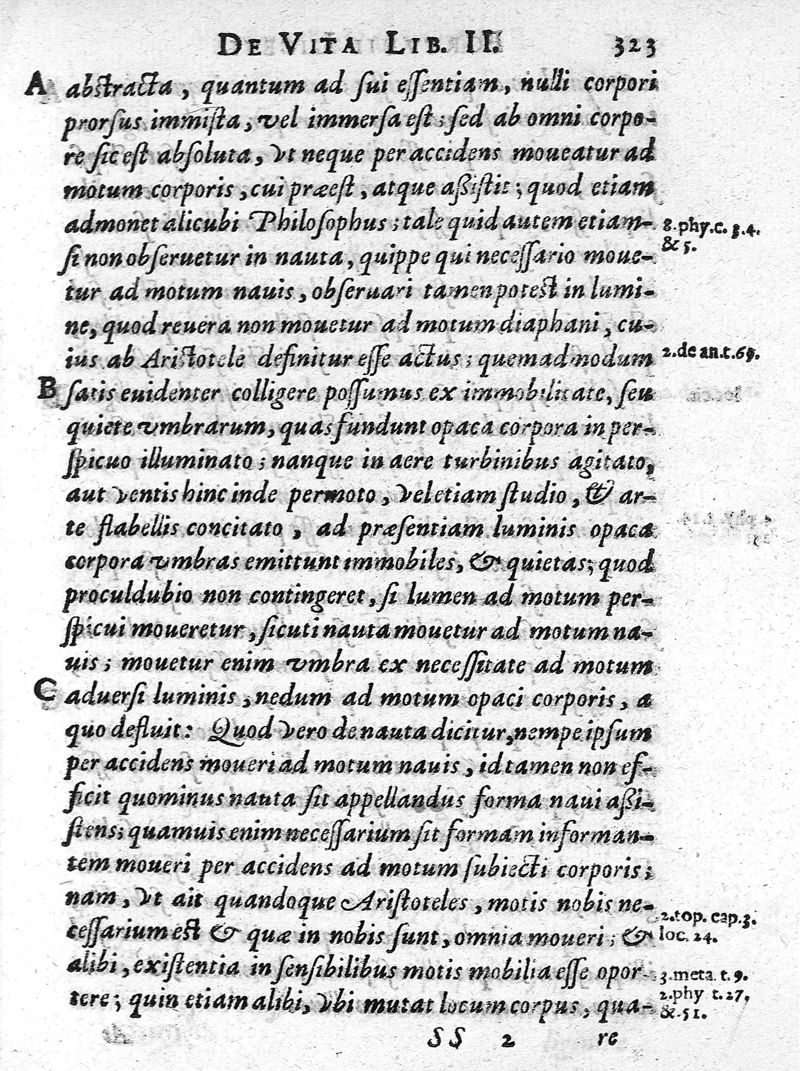 DE VITA LIB. II. 323
A abstracta, quantum ad sui essentiam, nulli corpori
prorsus immista, vel immersa est; sed ab omni corpo-
re sic est absoluta, vt neque per accidens moueatur ad
motum corporis, cui præest, atque aßistit; quod etiam
admonet alicubi Philosophus; tale quid autem etiam- 8.phy.c. 3.4.
si non obseruetur in nauta, quippe qui necessario moue- &5.
tur ad motum nauis, obseruari tamen potest in lumi-
ne, quod reuera non mouetur ad motum diaphani, cu-
ius ab Aristotele definitur esse actus; quemadmodum 2.de an.t.69.
B satis euidenter colligere possumus ex immobilitate, seu
quiete vmbrarum, quas fundunt opaca corpora in per-
spicuo illuminato; nanque in aere turbinibus agitato,
aut ventis hinc inde permoto, vel etiam studio, & ar-
te flabellis concitato, ad præsentiam luminis opaca
corpora vmbras emittunt immobiles, & quietas; quod
proculdubio non contingeret, si lumen ad motum per-
spicui moueretur, sicuti nauta mouetur ad motum na-
uis; mouetur enim vmbra ex necessitate ad motum
C aduersi luminis, nedum ad motum opaci corporis, a
quo defluit: Quod vero de nauta dicitur, nempe ipsum
per accidens moueri ad motum nauis, id tamen non ef-
ficit quominus nauta sit appellandus forma naui aßi-
stens; quamuis enim necessarium sit formam informan-
tem moueri per accidens ad motum subiecti corporis;
nam, vt ait quandoque Aristoteles, motis nobis ne- 2.top. cap.3.
cessarium est & quæ in nobis sunt, omnia moueri; & loc. 24.
alibi, existentia in sensibilibus motis mobilia esse opor- 3.meta t. 9.
tere; quin etiam alibi, vbi mutat locum corpus, qua- 2.phy t.27.
&51.
SS 2 re